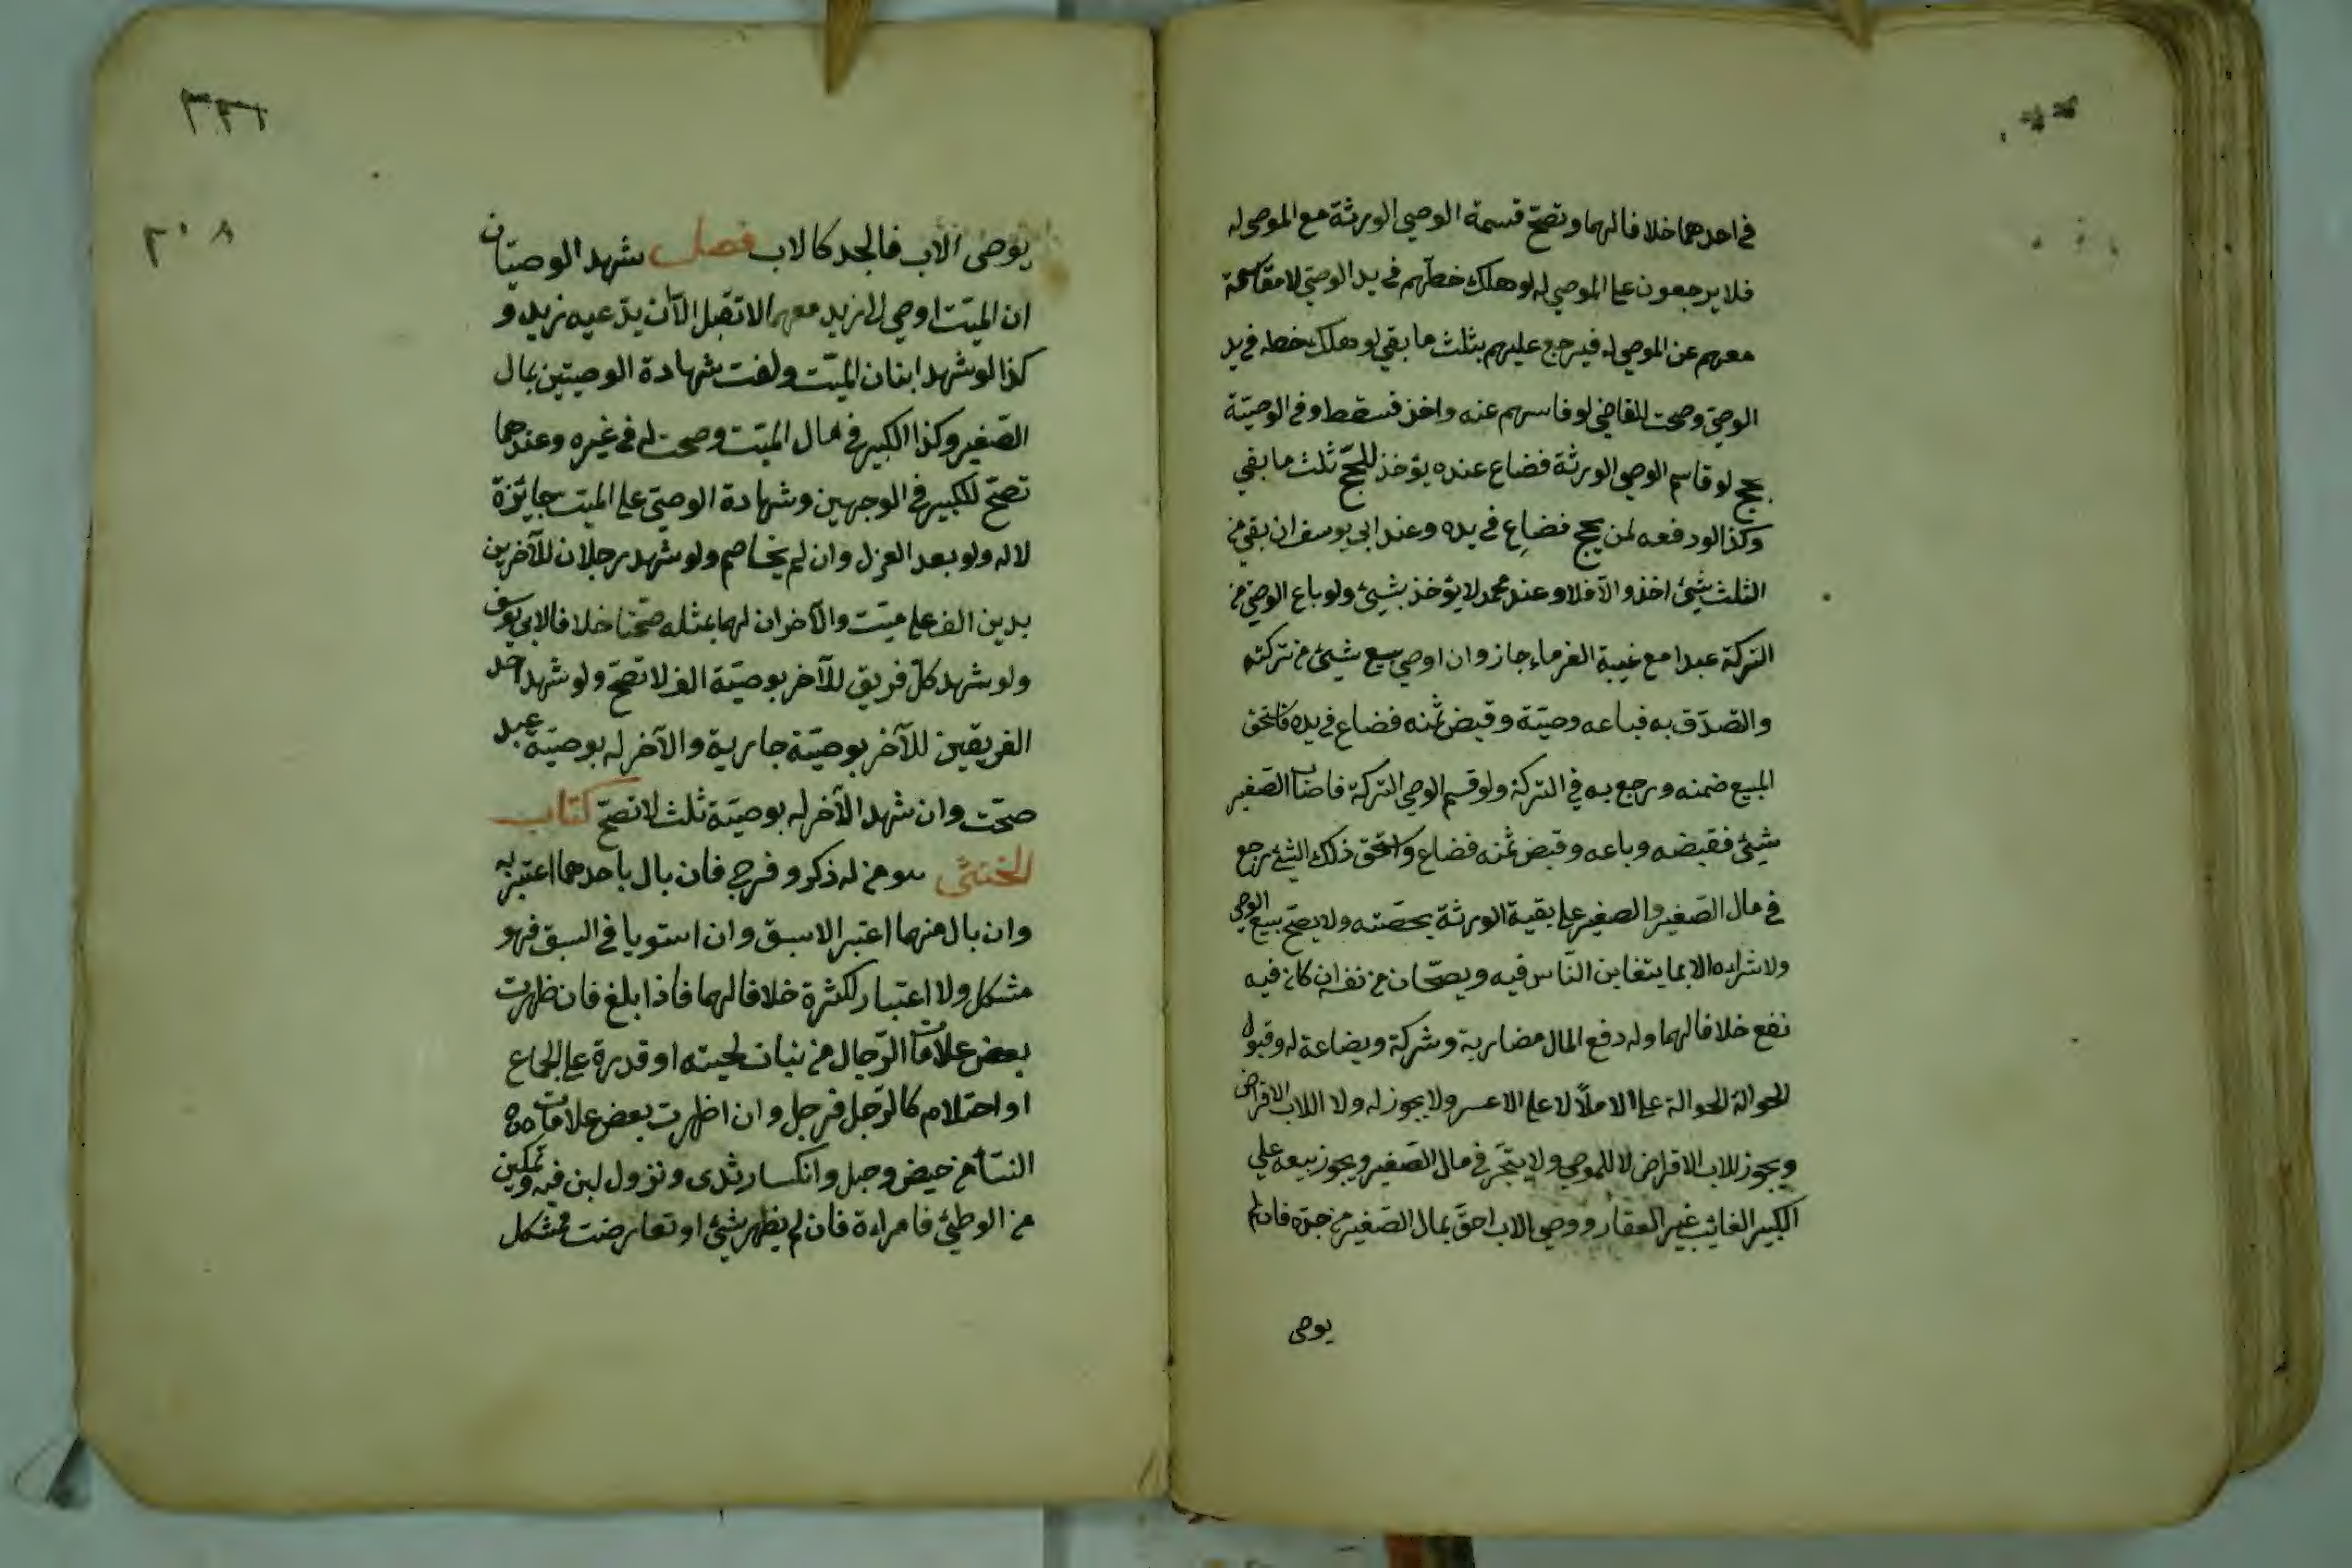 في احدهما خلافا لهما وتصحّ قسمة الوصي الورثة مع الموصى له
فلا يرجعون على الموصي له لو هلك خطّهم في يد الوصيّ لا مقاسمة
معهم عن الموصي له فيرجع عليهم بثلث ما بقي لو هلك خطه في يد
الوصيّ وصحت للقاضي لو قاسمهم عنه واخذ قسطه وفي الوصيّة
بحج لو قاسم الوصي الورثة فضاع عنده يؤخذ للحجّ ثلث ما بقي
وكذا لو دفعه لمن يحج فضاع في يده وعند ابي يوسف ان بقي من
الثلث شيئ اخذ والّا فلا وعند محمد لا يؤخذ بشيئ ولو باع الوصيّ من
التركة عبدا مع غيبة الغرماء جاز وان اوصي ببيع شيئ من تركته
والتصدّق به فباعه وصيّه وقبض ثمنه فضاع في يده فاستحق
المبيع ضمنه ورجع به في التركة ولو قسم الوصي التركة فاصاب الصّغير
شيئ فقبضه وباعه وقبض ثمنه فضاع واستحق ذلك الشئ رجع
في مال الصّغير والصغير على بقية الورثة بحصّته ولا يصحّ بيع الوصي
ولا شراءه الا بما يتغابن النّاس فيه ويصحّان من نفسه ان كان فيه
نفع خلافا لهما وله دفع المال مضاربة وشركة وبضاعة له وقبول
الحوالة الحوالة على الاملأ لا على الاعسر ولا يجوز له ولا اللاب الاقراض
ويجوز للاب الاقراض لا للموصي ولا يتّجر في مال الصّغير ويجوز بيعه علي
الكبير الغائب غير العقار ووصي الاب احقّ بمال الصّغير من جدّه فان لم
يوصى
٣٣٦
٢٠٨
يوصى الاب فالجد كالاب فصل شهد الوصيّان
ان الميّت اوصي الى زيد معهما لا تقبل الّا ان يدّعيه زيد و
كذا لو شهد ابنان الميّت ولغت شهادة الوصيّين بمال
الصّغير وكذا الكبير في مال الميّت وصحت له في غيره وعندهما
تصحّ للكبير في الوجهين وشهادة الوصيّ على الميت جايزة
لا له ولو بعد العزل وان لم يخاصم ولو شهد رجلان للآخرين
بدين الف على ميّت والآخران لهما بمثله صحّتا خلافا لابي يوسف
ولو شهد كلّ فريق للآخر بوصيّة الف لا تصحّ ولو شهد احد
الفريقين للآخر بوصيّة جارية والآخر له بوصيّة عبد
صحّت وان شهد الآخر له بوصيّة ثلث لا تصحّ كتاب
الخنثى هو من له ذكر وفرج فان بال باحدهما اعتبر به
وان بال منهما اعتبر الاسبق وان استويا في السبق فهو
مشكل ولا اعتبار لكثرة خلافا لهما فاذا بلغ فان ظهرت
بعض علامات الرّجال من نبات لحيته او قدرة على الجماع
او احتلام كالرّجل فرجل وان اظهرت بعض علامات
النسّاء من حيض وحبل وانكسار ثدى ونزول لبن فيه وتمكين
من الوطئ فامراءة فان لم يظهر شيئ او تعارضت فمشكل